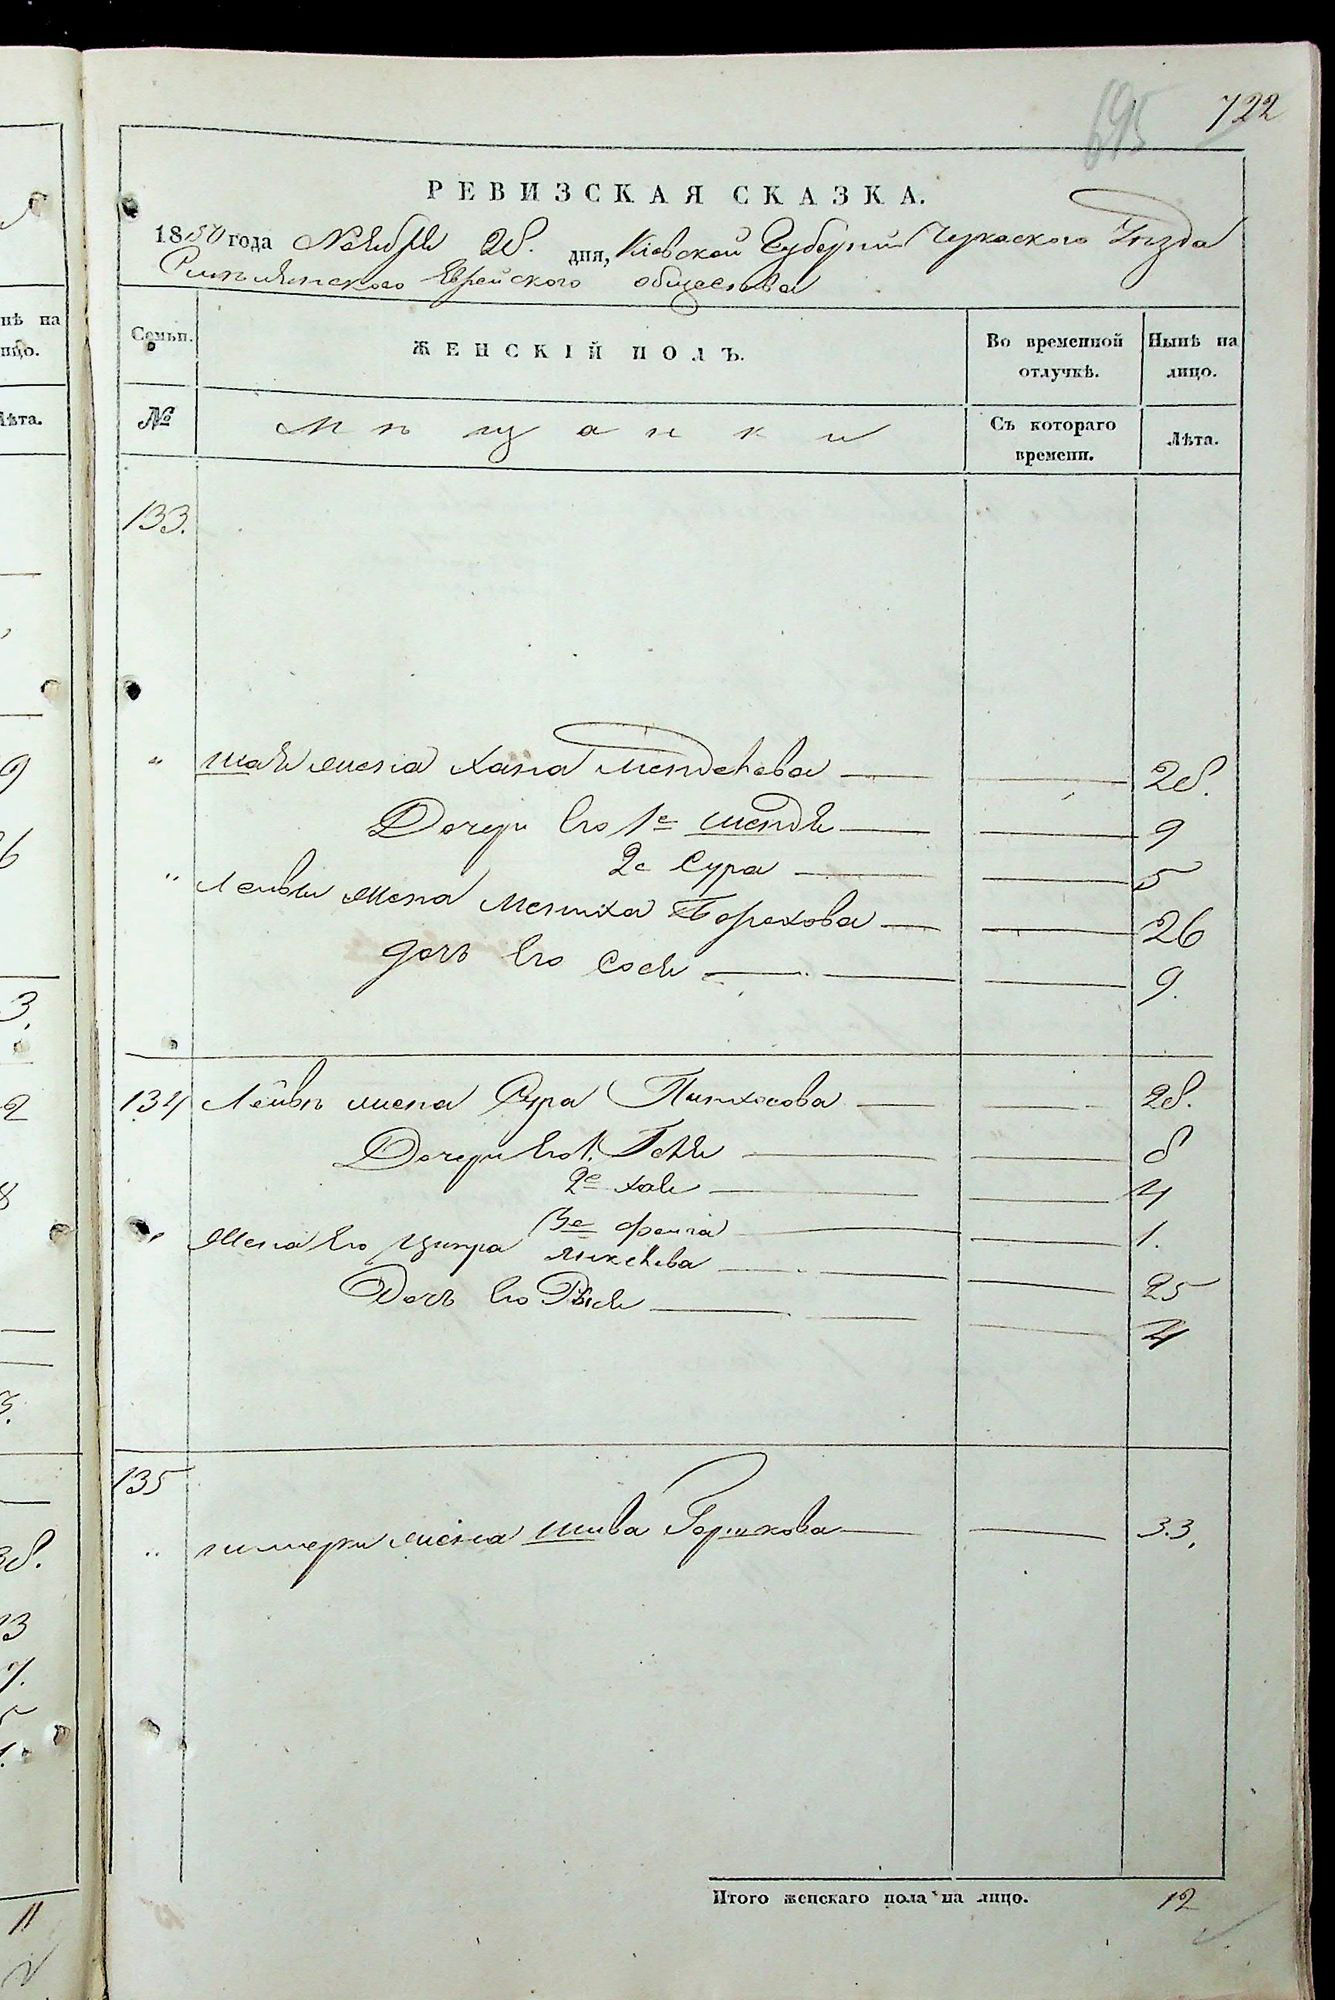 695 722
РЕВИЗСКАЯ СКАЗКА.
1850 года Ноября 28. дня, Кіевской Губерніи Черкаского Уѣзда
Смѣлянского Еврейского общества
нѣ на
лицо.
Лѣта.
Семьи. ЖЕНСКІЙ ПОЛЪ. Во временной отлучкѣ. Нынѣ на лицо.
№ Мѣщанки Съ котораго времени. Лѣта.
133.
" Шаи жена Хана Менделева 28.
Дочери его 1е Шендя 9
2е Сура 5
" Лейви жена Мениха Борохова 26
дочь его Сося 9.
134 Лейвы жена Сура Пинхосова 28.
Дочери его 1. 8
2е Хая 4
3е Фейга 1.
" Жена его Ципра 25
Дочь его Рыся 4
135
" жена Шива Горшкова 33.
Итого женскаго пола на лицо. 12